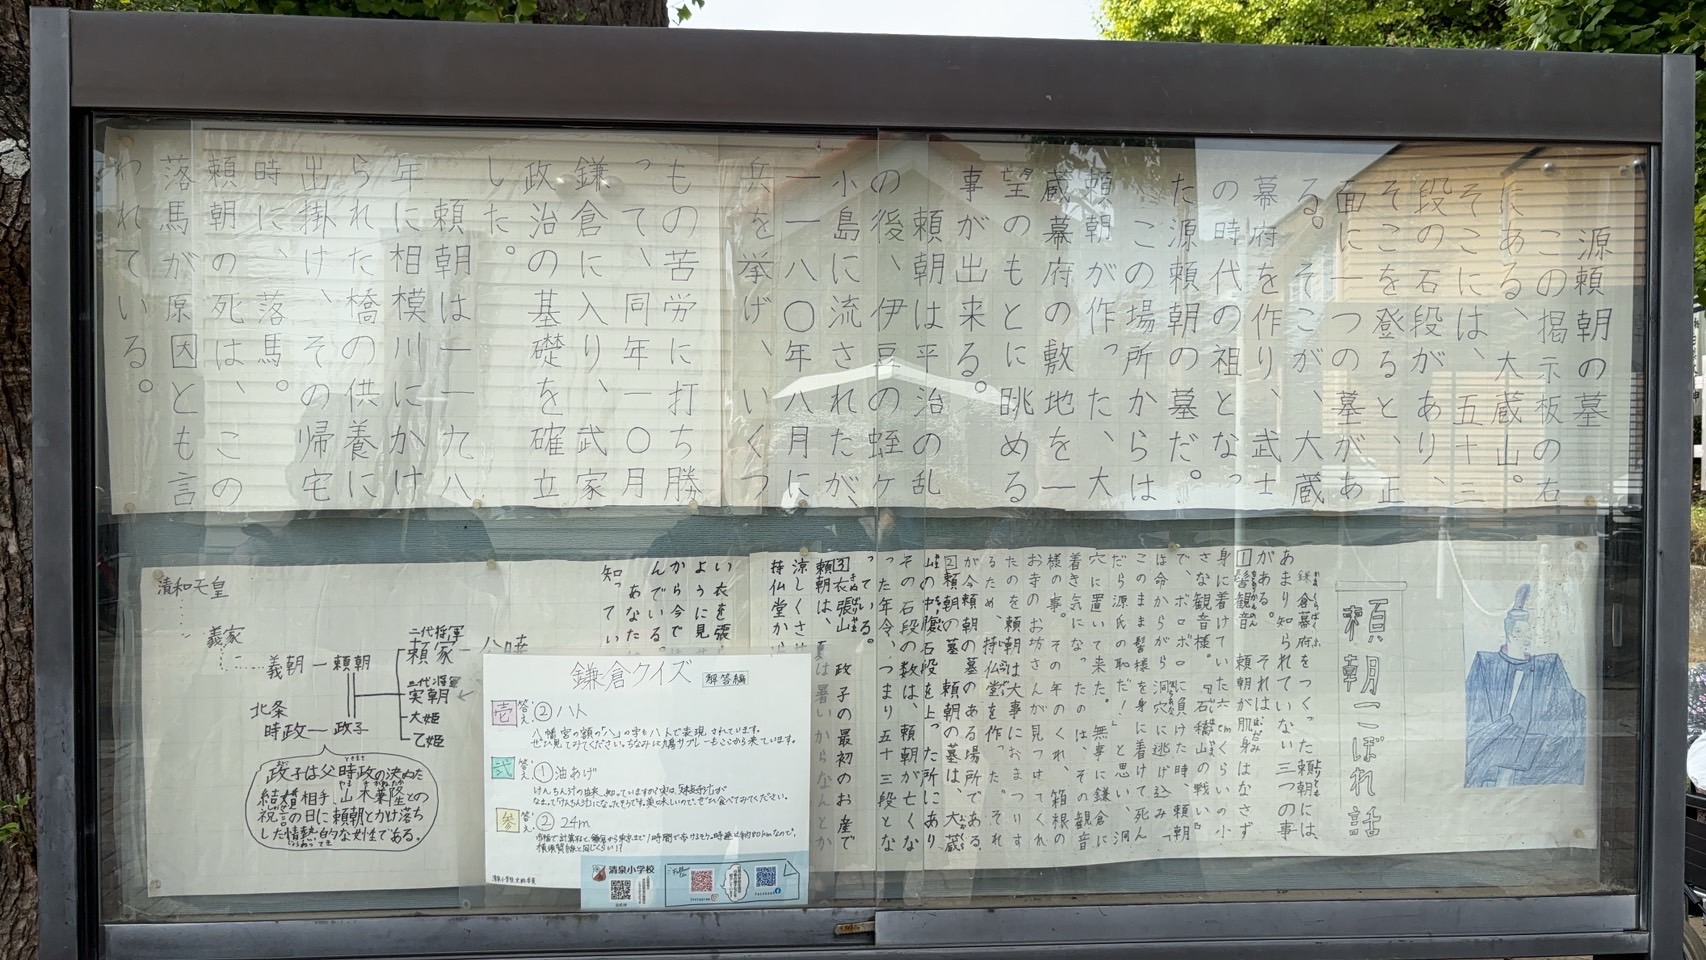 源頼朝の墓
この掲示板の右
にある、大蔵山。
そこには、五十三
段の石段があり、
そこを登ると、正
面に一つの墓があ
る。そこが、大蔵
幕府を作り、武士
の時代の祖となっ
た源頼朝の墓だ。
この場所からは
頼朝が作った、大
蔵幕府の敷地を一
望のもとに眺める
事が出来る。
頼朝は平治の乱
の後、伊豆の蛭ヶ
小島に流されたが、
一一八〇年八月に
兵を挙げ、いくつ
もの苦労に打ち勝
って、同年一〇月
鎌倉に入り、武家
政治の基礎を確立
した。
頼朝は一一九八
年に相模川にかけ
られた橋の供養に
出掛け、その帰宅
時に、落馬。
頼朝の死は、この
落馬が原因とも言
われている。
頼朝こぼれ話
鎌倉幕府をつくった頼朝には、
あまり知られていない三つの事
がある。それは
1 髻観音 頼朝が肌身はなさず
身に着けていた六cmくらいの小
さな観音様。『石橋山の戦い』
で、ボロボロに負けた時、頼朝
は命からがら洞穴に逃げ込み「
このまま髻様を身に着けて死ん
だら源氏の恥だ！」と思い、洞
穴に置いて来た。無事に鎌倉に
着き気になったのは、その観音
様の事。その年のくれ、箱根の
お寺のお坊さんが見つけてくれ
たのを、頼朝は大事におまつりす
るため、持仏堂を作った。それ
が今頼朝の墓のある場所である。
2 頼朝の墓 頼朝の墓は、大蔵
山の中腹、石段を上った所にあり
その石段の数は、頼朝が亡くな
った年令、つまり五十三段とな
っている。
3 衣張山 政子の最初のお産で
頼朝は、夏は暑いからなんとか
涼しくさせ
持仏堂か
い衣を張
ように見
から今で
んでいる
あなた
知ってい
清和天皇
義家
義朝―頼朝
二代将軍
頼家―公暁
三代将軍
実朝
大姫
乙姫
北条
時政―政子
政子は父時政の決めた
結婚相手、山木兼隆との
祝言の日に頼朝とかけ落ち
した情熱的な女性である。
鎌倉クイズ 解答編
壱 答え ②ハト
八幡宮の額の「八」の字もハトで表現されています。
ぜひ見てみてください。ちなみに鳩サブレーもここから来ています。
弐 答え ①油あげ
参 答え ②24m
清泉小学校
Instagram
Facebook